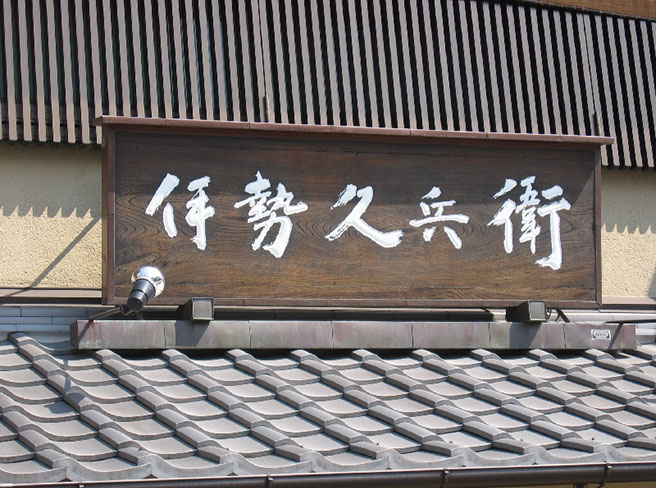 伊勢久兵衛